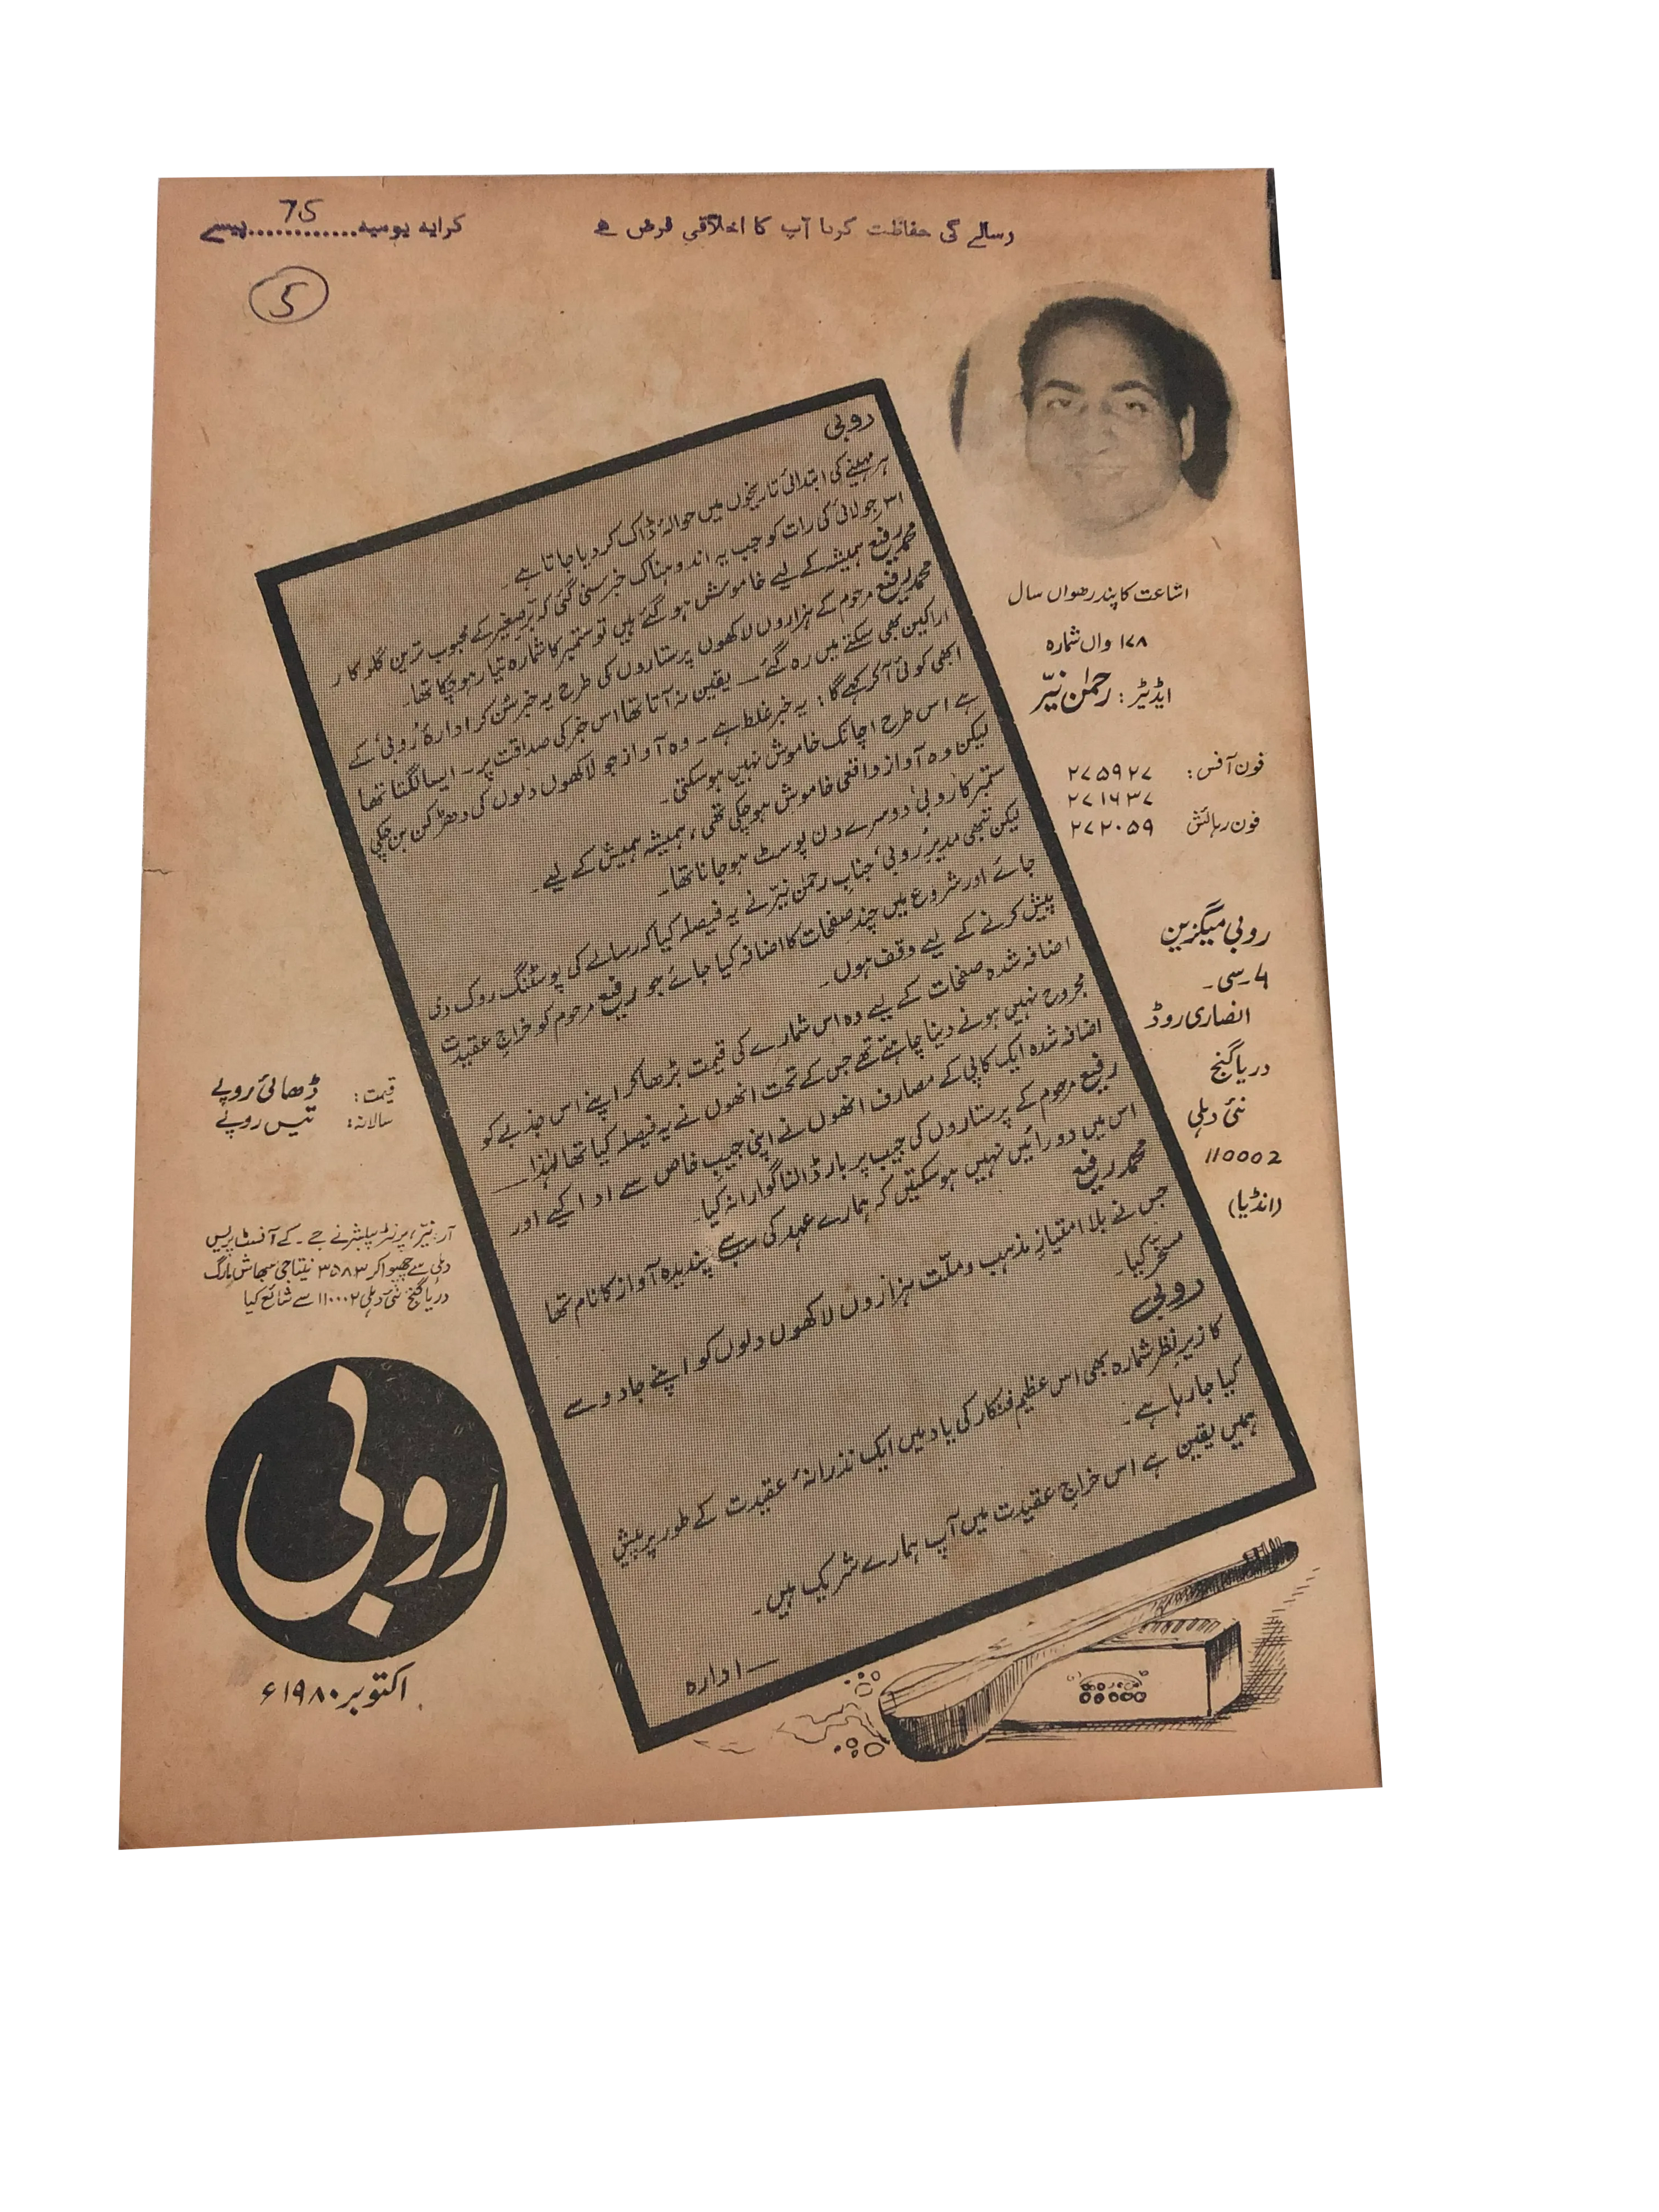 رسالے کی حفاظت کرنا آپ کا اخلاقی فرض ہے
کرایہ یومیہ............پیسے
75
5
اشاعت کا پندرھواں سال
۱۷۸ واں شمارہ
ایڈیٹر: رحمٰن نیّر
فون آفس: ۲۷۵۹۲۷
۲۷۱۶۳۷
فون رہائش ۲۷۲۰۵۹
روبی میگزین
۴۔سی۔
انصاری روڈ
دریا گنج
نئی دہلی
110002
(انڈیا)
روبی
ہر مہینے کی ابتدائی تاریخوں میں حوالۂ ڈاک کر دیا جاتا ہے۔
۳۱؍جولائی کی رات کو جب یہ اندوہناک خبر سنی گئی کہ برّصغیر کے محبوب ترین گلوکار
محمد رفیع ہمیشہ کے لیے خاموش ہو گئے ہیں تو ستمبر کا شمارہ تیار ہو چکا تھا۔
محمد رفیع مرحوم کے ہزاروں لاکھوں پرستاروں کی طرح یہ خبر سُن کر ادارۂ 'روبی' کے
اراکین بھی سکتے میں رہ گئے — یقین نہ آتا تھا اس خبر کی صداقت پر — ایسا لگتا تھا
ابھی کوئی آ کر کہے گا: یہ خبر غلط ہے۔ وہ آواز جو لاکھوں دلوں کی دھڑکن بن چکی
ہے اس طرح اچانک خاموش نہیں ہو سکتی۔
لیکن وہ آواز واقعی خاموش ہو چکی تھی، ہمیشہ ہمیش کے لیے۔
ستمبر کا 'روبی' دوسرے دن پوسٹ ہو جانا تھا۔
لیکن تبھی مدیرِ 'روبی' جناب رحمٰن نیّر نے یہ فیصلہ کیا کہ رسالے کی پوسٹنگ روک دی
جائے اور شروع میں چند صفحات کا اضافہ کیا جائے جو رفیع مرحوم کو خراجِ عقیدت
پیش کرنے کے لیے وقف ہوں۔
اضافہ شدہ صفحات کے لیے وہ اس شمارے کی قیمت بڑھا کر اپنے اس جذبے کو
مجروح نہیں ہونے دینا چاہتے تھے جس کے تحت انھوں نے یہ فیصلہ کیا تھا لہٰذا—
اضافہ شدہ ایک کاپی کے مصارف انھوں نے اپنی جیبِ خاص سے ادا کیے اور
رفیع مرحوم کے پرستاروں کی جیب پر بار ڈالنا گوارا نہ کیا۔
اس میں دو رائیں نہیں ہو سکتیں کہ ہمارے عہد کی سب سے پسندیدہ آواز کا نام تھا
محمد رفیع
جس نے بلا امتیازِ مذہب و ملّت ہزاروں لاکھوں دلوں کو اپنے جادو سے
مسخّر کیا۔
روبی
کا زیرِ نظر شمارہ بھی اس عظیم فنکار کی یاد میں ایک نذرانۂ عقیدت کے طور پر پیش
کیا جا رہا ہے۔
ہمیں یقین ہے اس خراجِ عقیدت میں آپ ہمارے شریک ہیں۔
—ادارہ
قیمت: ڈھائی روپے
سالانہ: تیس روپے
آر۔نیّر، پرنٹر پبلشر نے جے۔ کے آفسٹ پریس
دہلی سے چھپوا کر ۳۵۸۳ نیتاجی سبھاش مارگ
دریا گنج نئی دہلی ۱۱۰۰۰۲ سے شائع کیا
روبی
اکتوبر ۱۹۸۰ء